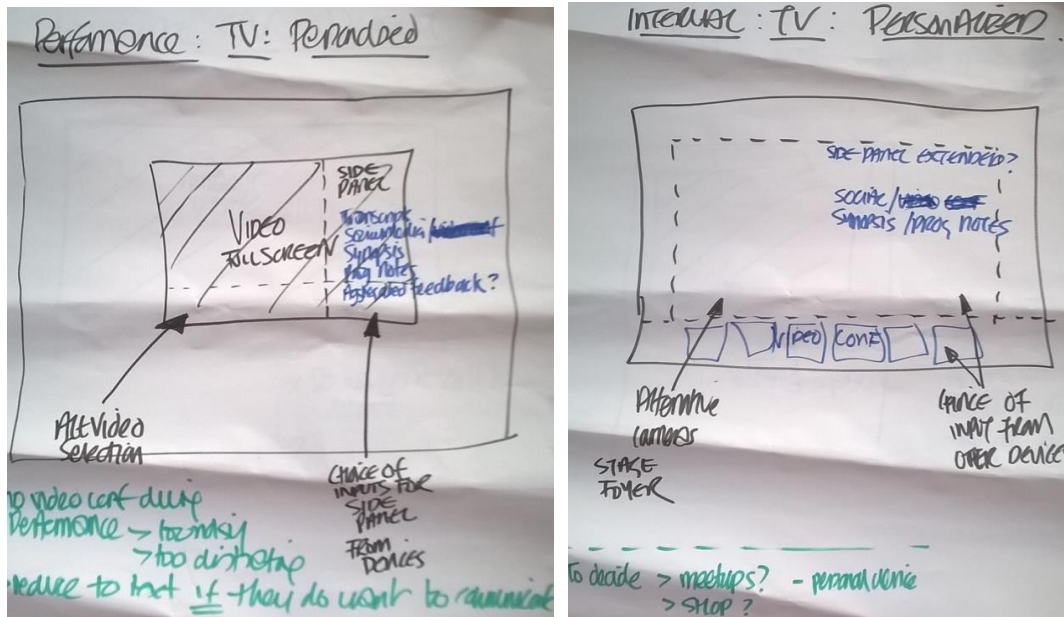 Performance : TV : Personalised
VIDEO
FULLSCREEN
SIDE
PANEL
Transcript
Synopsis
Prog Notes
Aggregated feedback?
Alt Video
Selection
CHOICE OF
INPUTS FOR
SIDE
PANEL
FROM
DEVICES
no video conf during
Performance > too noisy
> too distracting
reduce to text if they do want to communicate
INTERVAL : TV : PERSONALIZED
SIDE PANEL EXTENDED?
SOCIAL /
SYNOPSIS / PROG NOTES
VIDEO CONF
Alternative
Cameras
STAGE
FOYER
CHOICE OF
INPUT FROM
OTHER DEVICE
To decide > meetups? - personal device
> SHOP ?